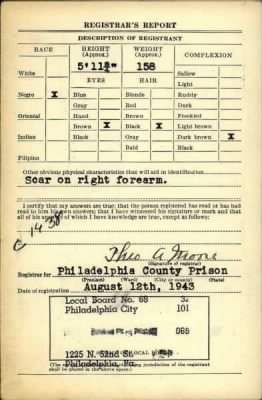 REGISTRAR'S REPORT
DESCRIPTION OF REGISTRANT
RACE HEIGHT (Approx.) WEIGHT (Approx.) COMPLEXION
5'11½" 158
White Sallow
EYES HAIR Light
Negro X Blue Blonde Ruddy
Gray Red Dark
Oriental Hazel Brown Freckled
Brown X Black X Light brown
Indian Black Gray Dark brown X
Bald Black
Filipino
Other obvious physical characteristics that will aid in identification
Scar on right forearm.
I certify that my answers are true; that the person registered has read or has had
read to him his own answers; that I have witnessed his signature or mark and that
all of his answers of which I have knowledge are true, except as follows:
Theo A Moore
(Signature of registrar)
Registrar for Philadelphia County Prison
(Precinct) (Ward) (City or county) (State)
Date of registration August 12th, 1943
Local Board No. 68 32
Philadelphia City 101
069
1225 N. 52nd St.
Philadelphia, Pa.